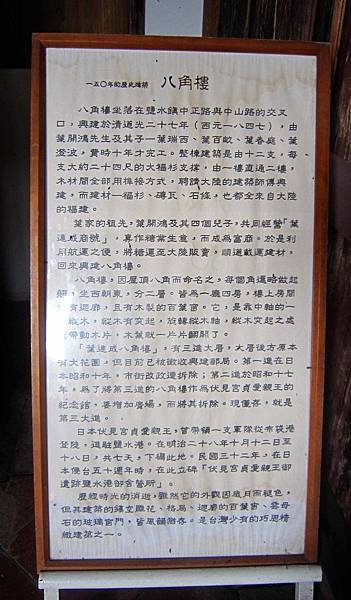 一五〇年的歷史建築 八角樓
八角樓坐落在鹽水鎮中正路與中山路的交叉
口，興建於清道光二十七年（西元一八四七），由
葉開鴻先生及其子—葉瑞西、葉百畝、葉春庭、葉
澄波，費時十年才完工。整棟建築是由十二支，每
支大約二十四尺的大福杉支撐，由一樓直通二樓，
木材間全部用榫接方式，聘請大陸的建築師傅興
建，而建材—福杉、磚瓦、石條，也都全來自大陸
的福建。
葉家的祖先，葉開鴻及其四個兒子，共同經營「葉
連成商號」，專作糖業生意，而成為富商。於是利
用航運之便，將糖運至大陸販賣，順道載運建材，
回來興建八角樓。
八角樓，因屋頂八角而命名之，每個角還略做起
翹，坐西朝東，分二層。皆為一廳四房，樓上房間
有迴廊，且有木製的百葉窗。它，是靠中軸的一
縱木，縱木有突起，旋轉縱木軸，縱木突起之處
帶動木片，木葉就一片片翻開了。
「葉連成八角樓」，有三進大厝，大厝後方原本
有大花園，但目前已被徵收興建郵局。第一進在日
本昭和十年，市街改政遭拆除；第二進於昭和十七
年，為了將第三進的八角樓作為伏見宮貞愛親王的
紀念館，要增加廣場，而將其拆除。現僅存，就是
第三大進。
日本伏見宮貞愛親王，曾帶領一支軍隊從布袋港
登陸，進駐鹽水港。在明治二十八年十月十二日至
十八日，共七天，下榻此地。民國三十二年，在日
本侵台五十週年時，在此立碑「伏見宮貞愛親王御
遺跡鹽水港御舍營所」。
歷經時光的消逝，雖然它的外觀因歲月而褪色，
但其建築的鏤空雕花、格局、迴廊的百葉窗、雲母
石的玻璃宮門，皆風韻猶存。是台灣少有的巧思精
緻建築之一。